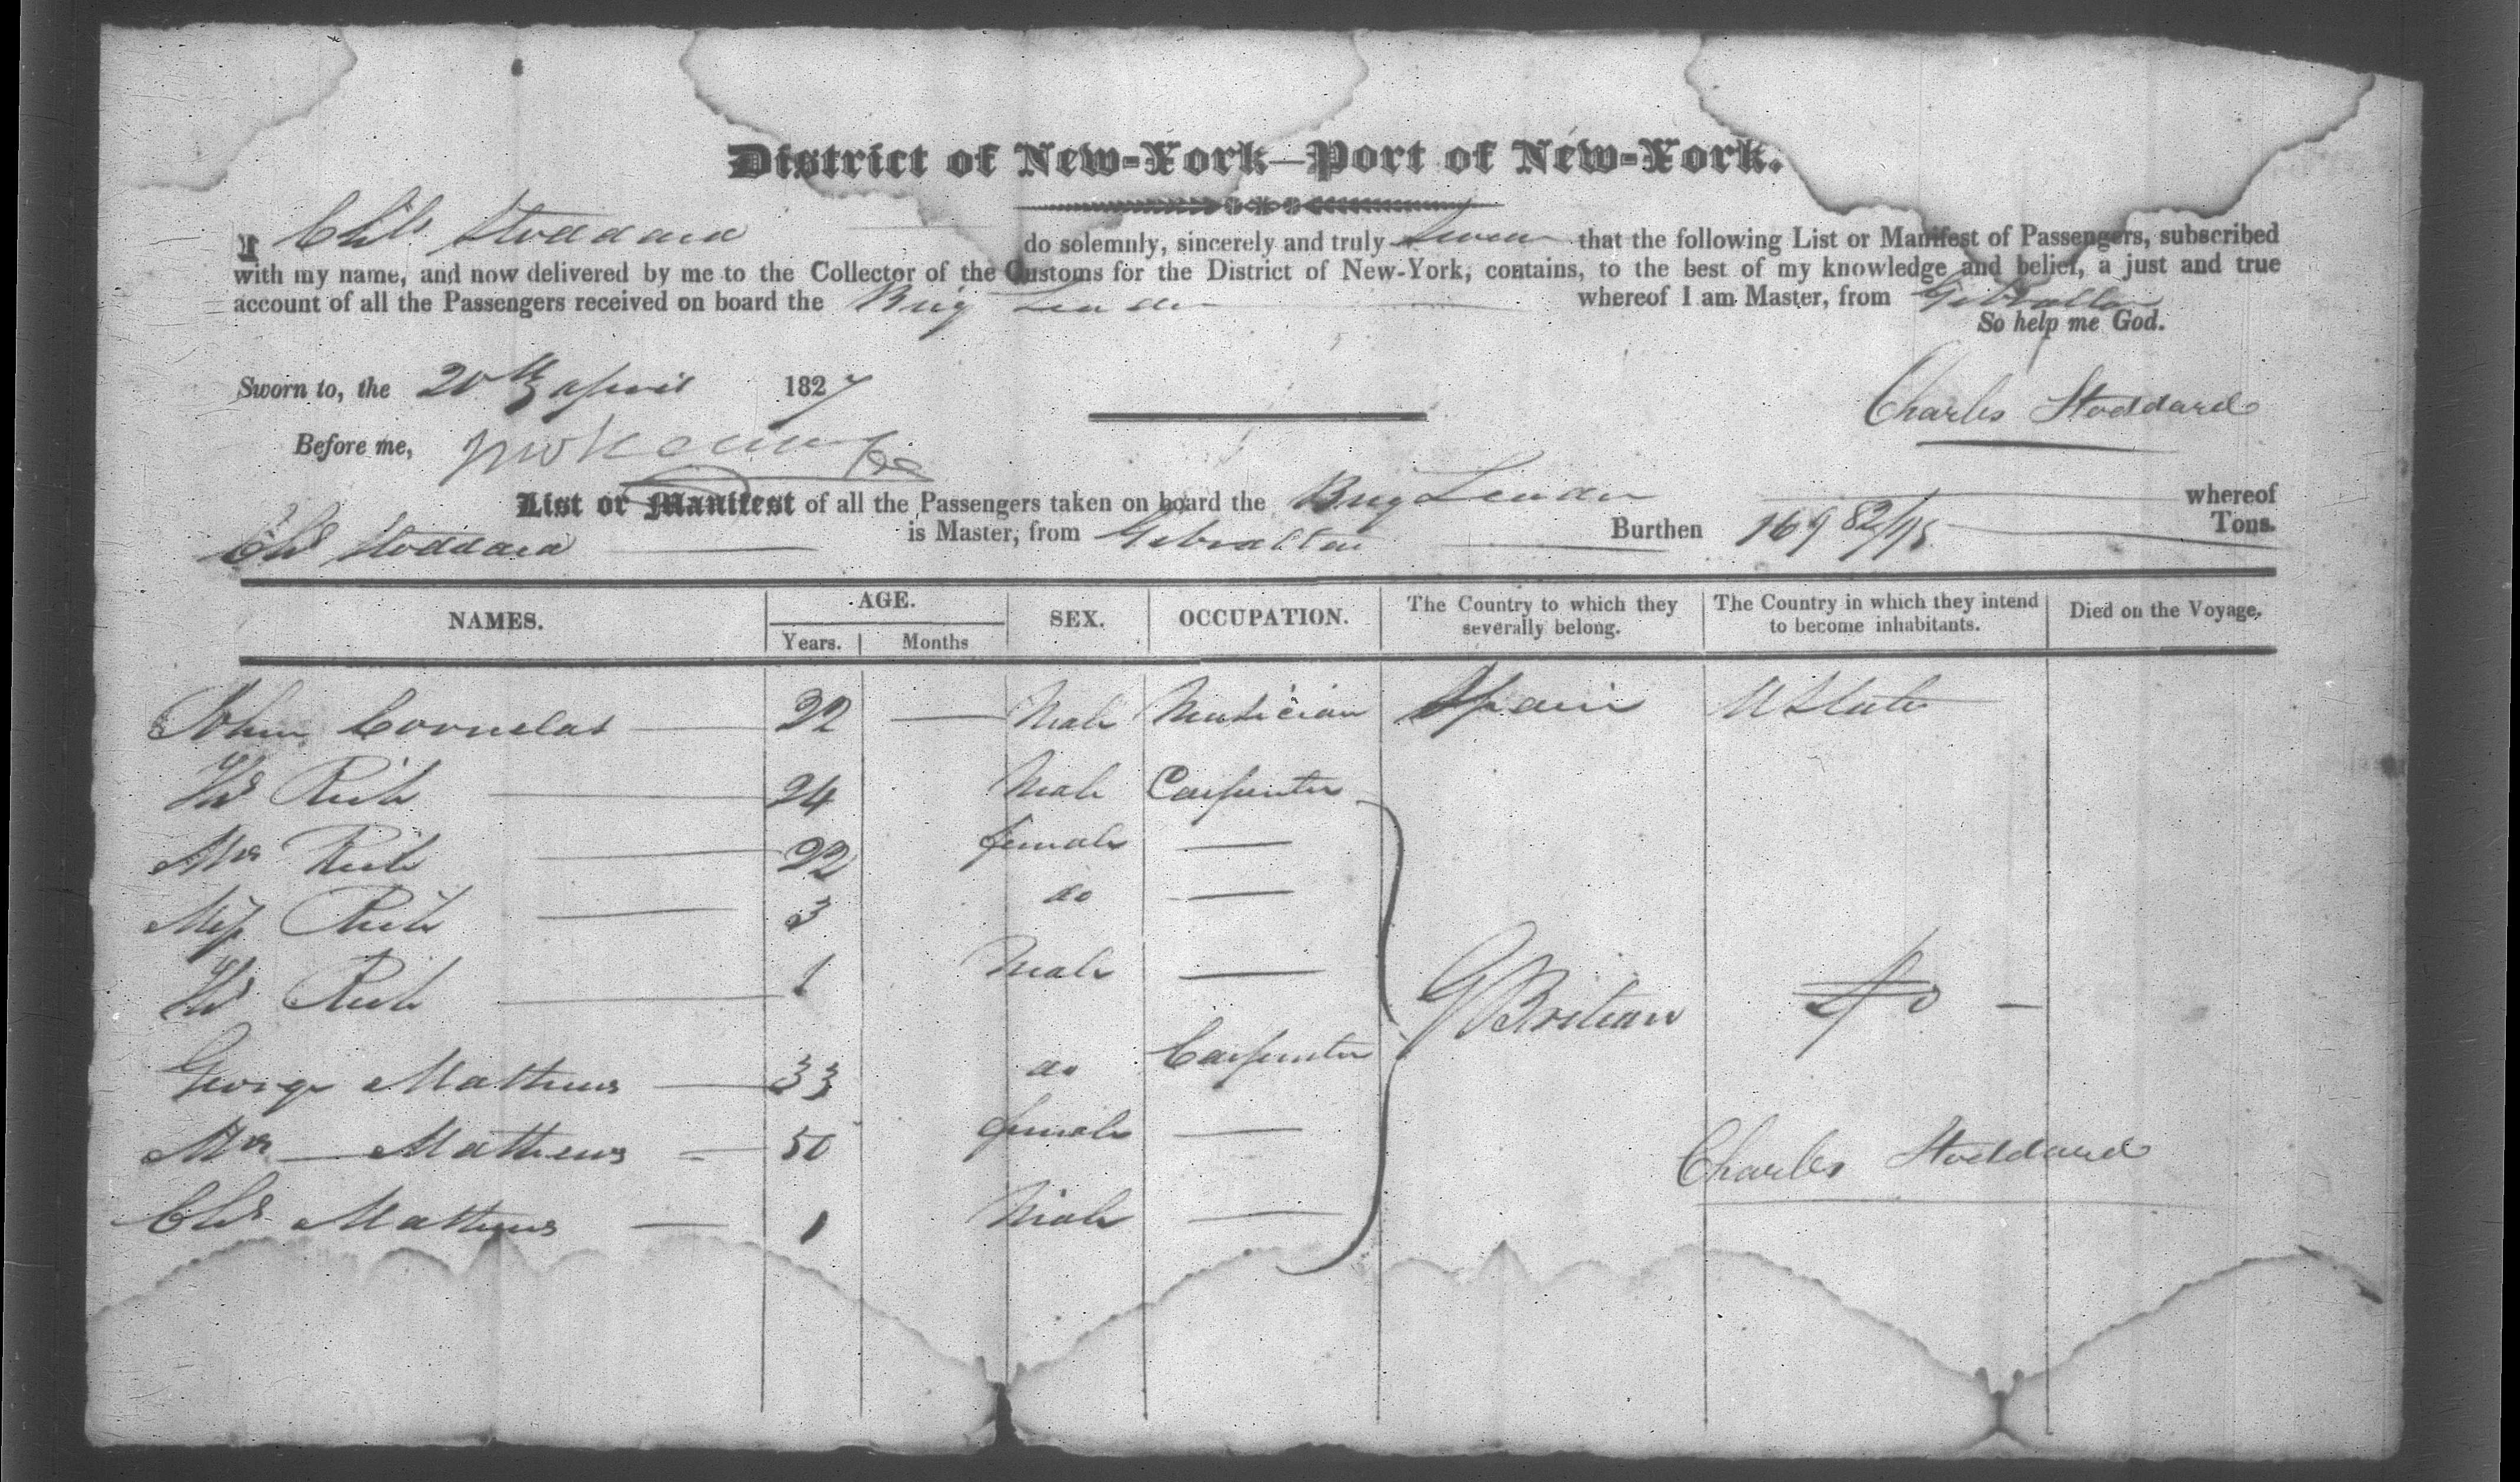 District of New-York—Port of New-York.
I Chs Stoddard do solemnly, sincerely and truly Swear that the following List or Manifest of Passengers, subscribed
with my name, and now delivered by me to the Collector of the Customs for the District of New-York, contains, to the best of my knowledge and belief, a just and true
account of all the Passengers received on board the Brig whereof I am Master, from Gibralter
So help me God.
Sworn to, the 20th april 1827
Charles Stoddard
Before me,
List or Manifest of all the Passengers taken on board the Brig whereof
Chs Stoddard is Master, from Gibralter Burthen 169 82/95 Tons.
NAMES. AGE. SEX. OCCUPATION. The Country to which they severally belong. The Country in which they intend to become inhabitants. Died on the Voyage.
Years. Months
John Cornelas 22 Male Musician Spain U States
Ths 24 Male Carpenter
Mrs 22 female
Miss 3 do
Ths 1 Male
G Britian Do
George Mathews 33 do Carpenter
Mrs Mathews 50 female
Charles Stoddard
Chs Mathews 1 Male